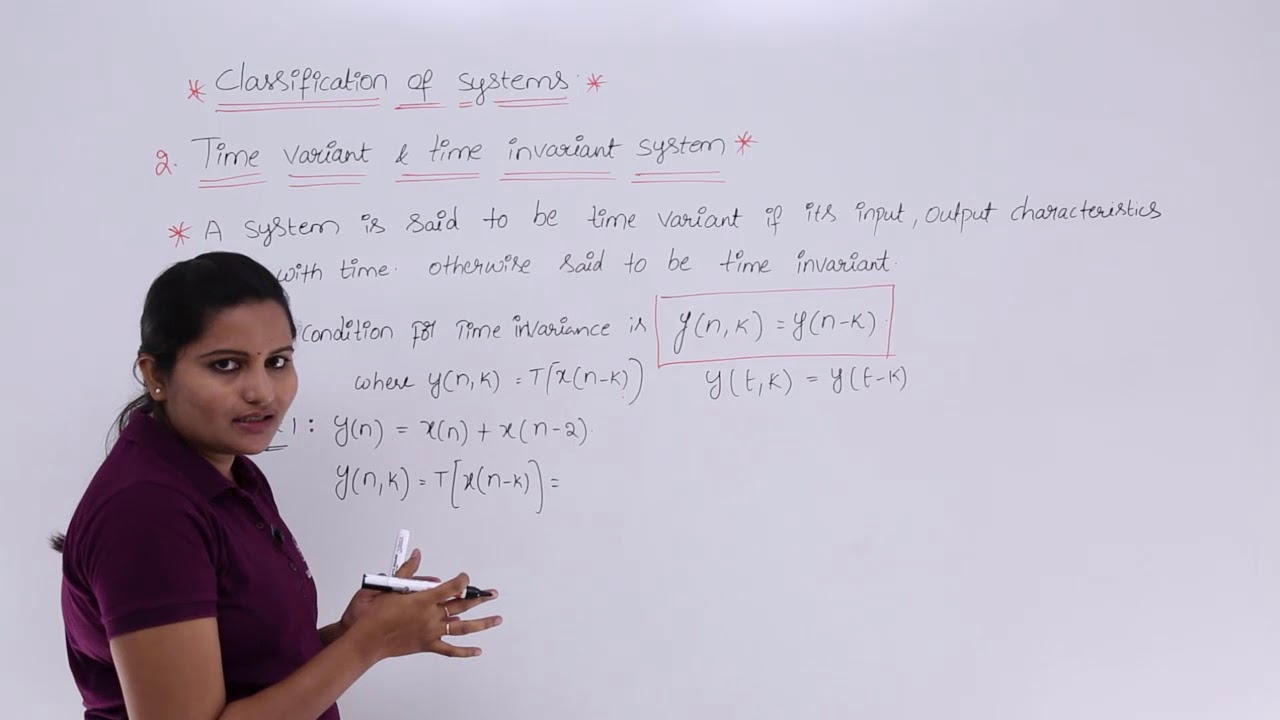 * Classification of systems *
2. Time variant & time invariant system *
* A system is said to be time variant if its input, output characteristics
with time. otherwise said to be time invariant.
condition for Time invariance is y(n,k) = y(n-k)
where y(n,k) = T[x(n-k)] y(t,k) = y(t-k)
1: y(n) = x(n) + x(n-2).
y(n,k) = T[x(n-k)] =